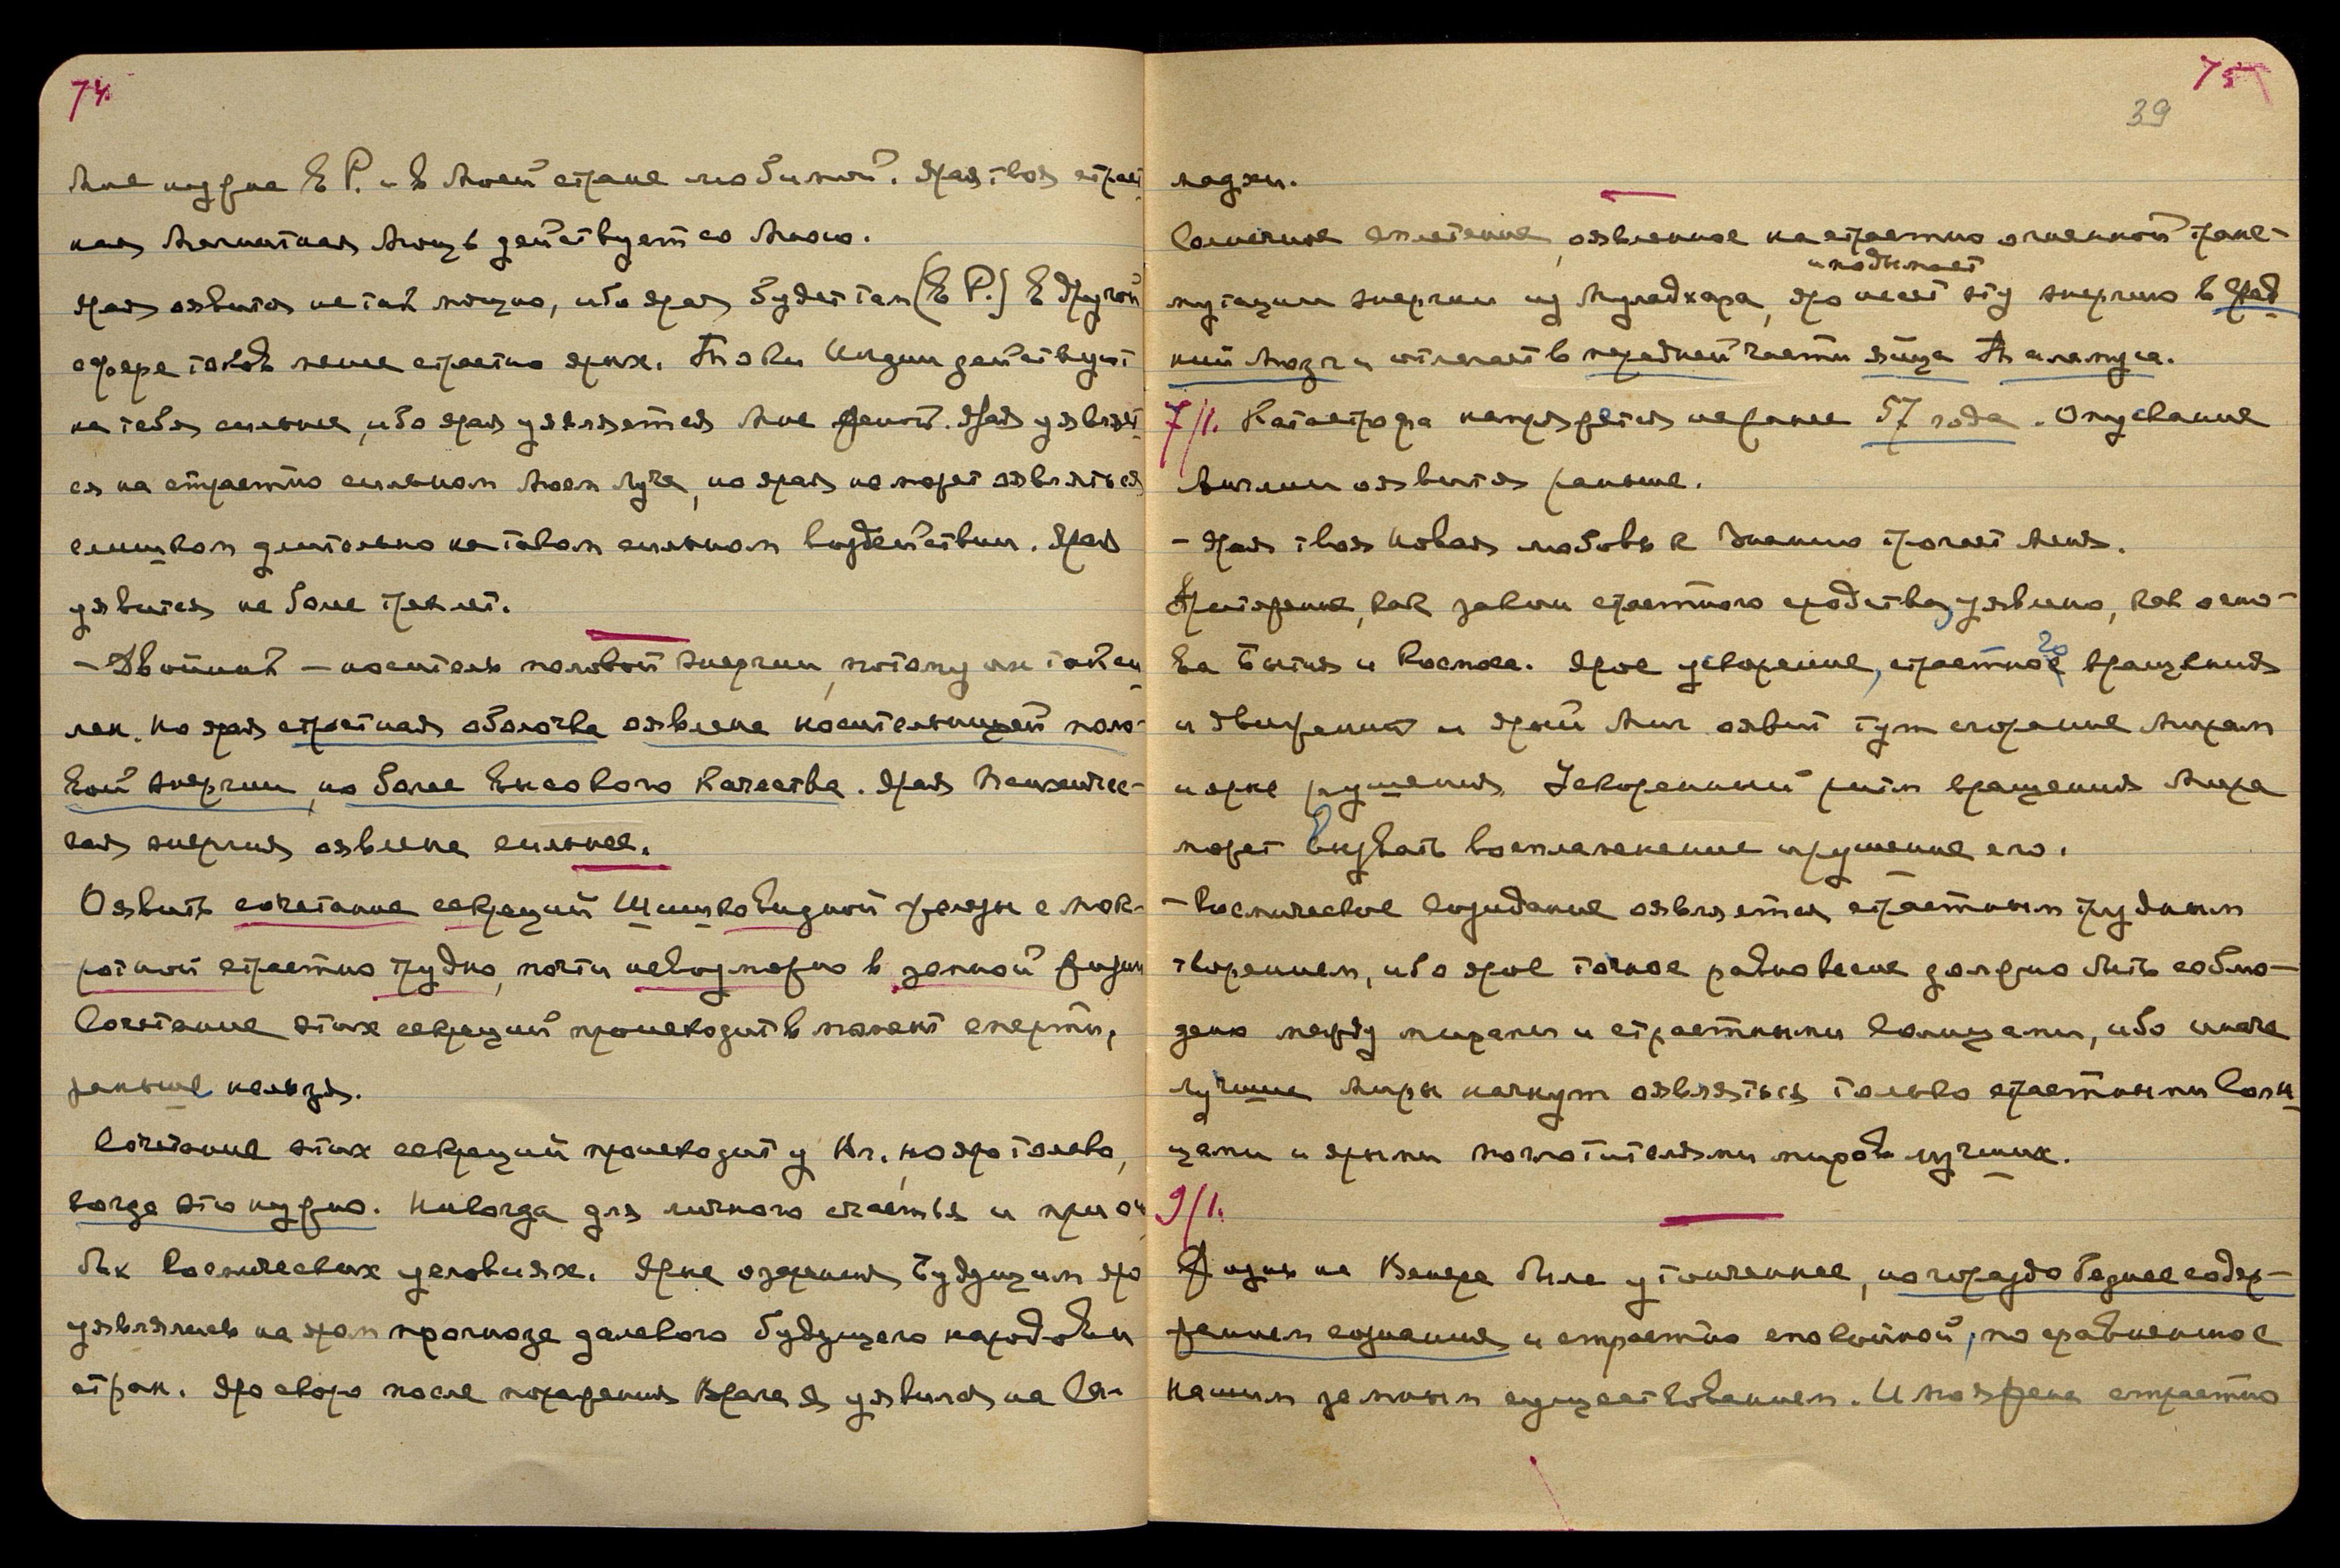 74
Мне нужна в Р. и в Моей стране любимой. Ярая твоя страст-
ная Магнитная Мощь действует со Мною.
Ярая оявится не так мощно, ибо ярая будет там (в Р.) в другой
сфере токов менее страстно ярых. Токи Индии действуют
на тебя сильнее, ибо ярая уявляется Мне Женой. Ярая уявляет-
ся на страстно сильном Моем Луче, но ярая не может оявляться
слишком длительно на таком сильном воздействии. Ярая
уявится не более трех лет.
– Двойник – носитель половой энергии, потому он так си-
лен. Но ярая страстная оболочка оявлена носительницей поло-
вой энергии, но более высокого качества. Ярая Психичес-
кая энергия оявлена сильнее.
Оявить сочетание секреций Шишковидной железы с мок-
ротной страстно трудно, почти невозможно в земной жизни
Сочетание этих секреций происходит в момент смерти,
раньше нельзя.
Сочетание этих секреций происходит у Вл., но яро только,
когда это нужно. Никогда для личного счастья и при осо-
бых Космических условиях. Ярые озарения Будущим яро
уявлялись на яром прогнозе далекого будущего народов и
стран. Яро скоро после поражения Врага Я уявился на Са-
75
39
мадхи.
Солнечное сплетение, оявленное на страстно огненной транс-
и подымает
мутации энергии из Муладхара, яро несет эту энергию в Град-
ний Мозг и отлагает в передней части яйца Таламуса.
7/I. Катастрофа напряжется не ранее 57 года. Опускание
Англии оявится раньше.
– Ярая твоя новая любовь к Знанию трогает Меня.
Притяжение, как закон страстного сродства, уявлено, как осно-
ва Бытия и Космоса. Ярое ускорение, страстного вращения
и движения и ярый Миг оявит тут сгорание Мирам
и ярые рушения. Ускоренный ритм вращения Мира
может вызвать воспламенение и рушение его.
– Космическое созидание оявляется страстным трудным
творением, ибо ярое точное равновесие должно быть соблю-
дено между мирами и страстными Солнцами, ибо иначе
лучшие Миры начнут оявляться только страстными Солн-
цами и ярыми поглотителями миров лучших.
9/I.
Жизнь на Венере была утонченнее, но гораздо беднее содер-
жанием сознания и страстно спокойной, по сравнению с
нашим земным существованием. И Моя Жена страстно